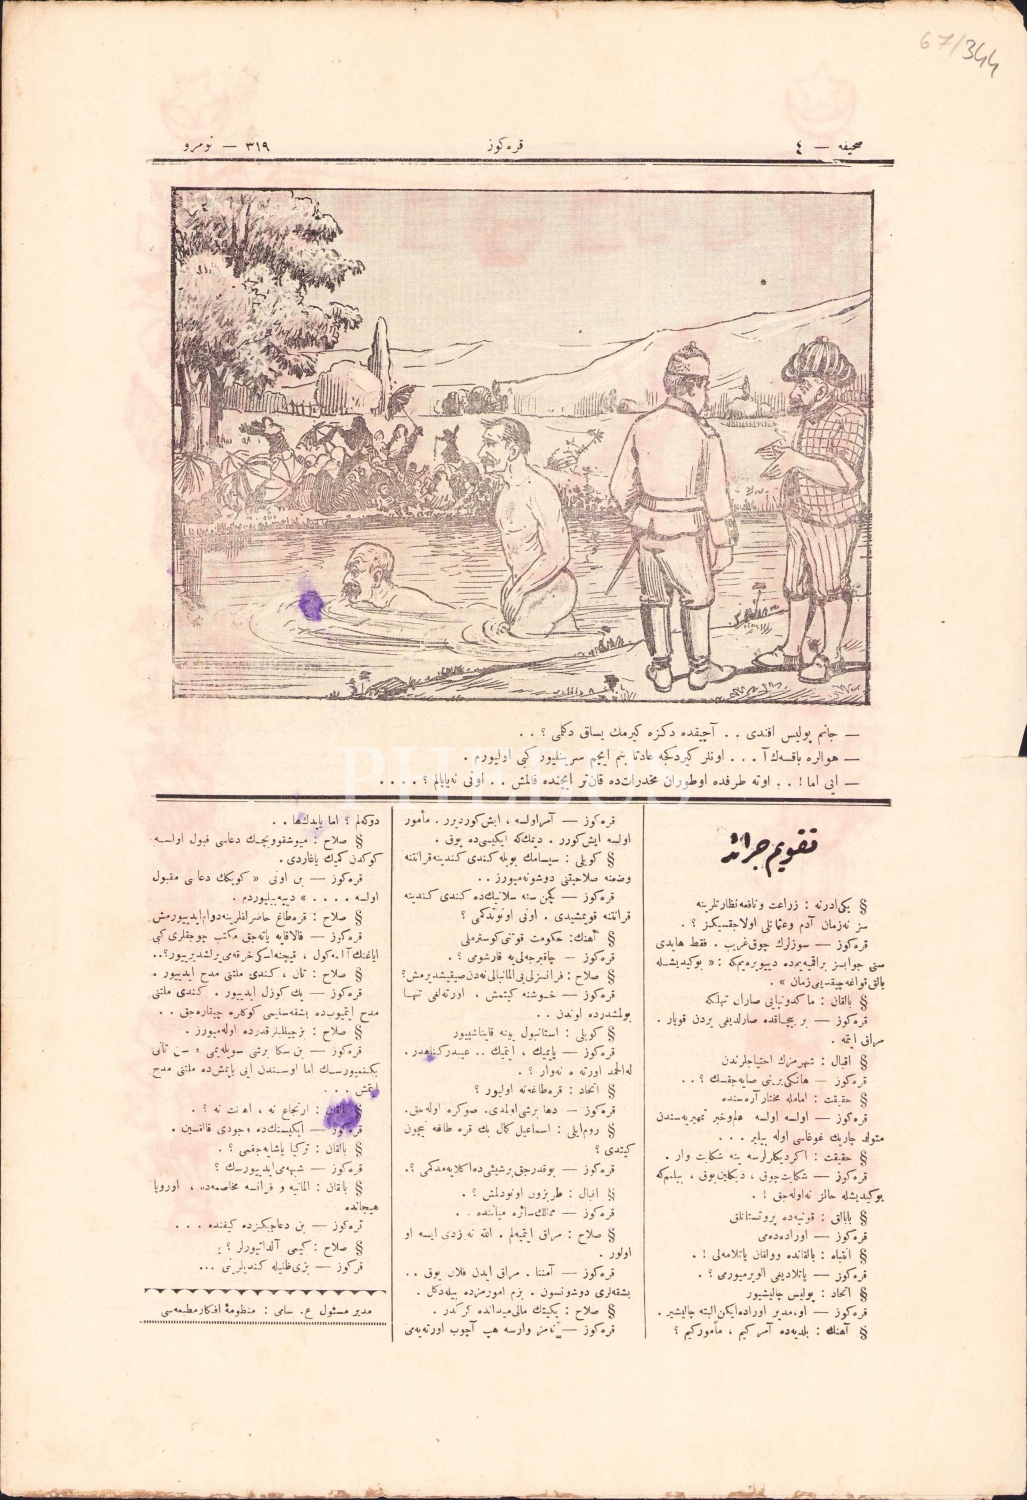 67/344
صحیفه — ٤
قره کوز
٣١٩ — نومرو
— جانم پولیس افندی . . آچیقده دکزه کیرمك یساق دکلمی ؟ . .
— هوالره باقسه‌ك آ . . . اونلر کیردکجه عادتا بنم ایچم سرینلیور کبی اولیورم .
— ایی اما ! . . اوته طرفده اوطوران مخدرات‌ده قان‌تر ایچنده قالمش . . اونی نه‌یاپالم ؟ . . . .
PHEBUS
تقویم جرائد
§ یکی ادرنه : زراعت و نافعه نظارتلرینه
سز نه‌زمان آدم وعثمانلی اولاجقسیکز ؟ .
قره‌کوز — سوزلرك چوق غریب . فقط هایدی
سنی جوابسز براقمیه‌یم‌ده دییویره‌یم‌که : « بوکیدیشله
بالق قواغه چیقدیغی زمان » .
§ بالقان : ماکدونیایی صاران تهلکه
قره‌کوز — بر بیچاقده صارلدیغی یردن قوپار .
مراق ایتمه .
§ اقبال : شهرمزك احتیاجلرندن
قره‌کوز — هانکی برینی صایه‌جقسك ؟ . .
§ حقیقت : امامله مختار آره‌سنده
قره‌کوز — اولسه اولسه علم‌وخبر تمهیریه‌سندن
متولد چاریك غوغاسی اوله بیلیر . . .
§ حقیقت : اکردیکلرلرسه ینه شکایت وار .
قره‌کوز — شکایت‌چوق ، دیکلین‌یوق ، بیلیم‌که
بوکیدیشله حالز نه‌اوله‌جق ! .
§ بابالق : قونیه‌ده پروتستانلق
قره‌کوز — اوراده‌ده‌می
§ انتباه : بالقانده وولقان پاتلامه‌لی ! .
قره‌کوز — پاتلادیغی الویرمیورمی ؟ .
§ اتحاد : پولیس چالیشیور
قره‌کوز — او،مدیر اوراده‌ایکن‌البته چالیشیر .
§ آهنك : بلدیه‌ده آمرکیم ، مأمورکیم ؟
قره‌کوز — آمراولسه ، ایش‌کوردیرر . مأمور
اولسه ایش‌کورر . دیمك‌که ایکیسی‌ده یوق .
§ کویلی : سیسامك بویله کندی کندینه قرانتنه
وضعنه صلاحیتنی دوشونه‌میورز . .
قره‌کوز — کچن سنه سلانیك‌ده کندی کندینه
قرانتنه قویمشیدی . اونی اونوتدکمی ؟
§ آهنك: حکومت قوتنی کوسترملی
قره‌کوز — چاقیرجه‌لی‌یه قارشومی ؟ .
§ صلاح : فرانسزلر بی‌المانیالی نه‌دن صیقیشدیرمش؟
قره‌کوز — خوشنه کیتمش ، اورته‌لغی تنها
بولمشدرده اوندن . .
§ کویلی : استانبول یینه قایناشیور
قره‌کوز — یاپمیك ، ایتمیك .. عیبدرکناهدر.
له‌الحمد اورته ده نه‌وار ؟ .
§ اتحاد : قره‌طاغه نه اولیور ؟
قره‌کوز — دها برشی اولمدی. صوکره اوله‌جق.
§ روم‌ایلی : اسماعیل کمال بك قره طاغه نیچون
کیتدی ؟
قره‌کوز — بوقدرجق برشیئی‌ده اکلایه‌مدکمی ؟.
§ اقبال : طربزون اونودلمش ؟ .
قره‌کوز — ممالك سائره میاننده . .
§ صلاح : مراق ایتمیه‌لم . الله نه‌یازدی ایسه او
اولور .
قره‌کوز — آمننا . مراق ایدن فلان یوق . .
بشقه‌لری دوشونسون . بزم امورمزده بیله‌دکل .
§ صلاح : یکیتك مالی میدانده کرکدر .
قره‌کوز — نه‌مز وارسه هپ آچوب اورته‌یه‌می
دوکه‌لم ؟ اما یاپدك‌ها . .
§ صلاح : میوشقوویچك دعاسی قبول اولسه
کوکدن کیك یاغاردی .
قره‌کوز — بن اونی « کوپکك دعاسی مقبول
اولسه . . . . » دییه بیلیوردم .
§ صلاح : قره‌طاغ حاضرلقلرینه دوام ایدییورمش
قره‌کوز — فالاقه‌یه یاته‌جق مکتب چوجقلری کبی
§ صلاح : تان ، کندی ملتنی مدح ایدییور .
قره‌کوز — پك کوزل ایدییور . کندی ملتنی
مدح ایتمیوب‌ده بشقه‌سنیمی کوکلره چیقاره‌جق . .
§ صلاح : بزچینلیلر قدرده اوله‌میورز .
قره‌کوز — بن سکا برشی سویله‌یمی ؟ سن تانی
بکنمیورسك اما اوسندن ایی یاپمش‌ده ملتنی مدح
ایتمش . . . .
§ بالقان : ارتجاع نه ، اهنت نه ؟ .
قره‌کوز — ایکیسنك‌ده وجودی قالقسین .
§ بالقان : ترکیا یاشایه‌جقمی ؟ .
قره‌کوز — شبهه‌می ایدییورسك ؟
§ بالقان : المانیه و فرانسه مخاصمه‌ده ، اوروپا
هیجانده
قره‌کوز — بن دعاجیکزده کیفنده . . .
§ صلاح : کیمی آلداتیورلر ؟
قره‌کوز — بزی ظنیله کندیلرینی ...
مدیر مسئول ع. سامی : منظومهٔ افکار مطبعه‌سی